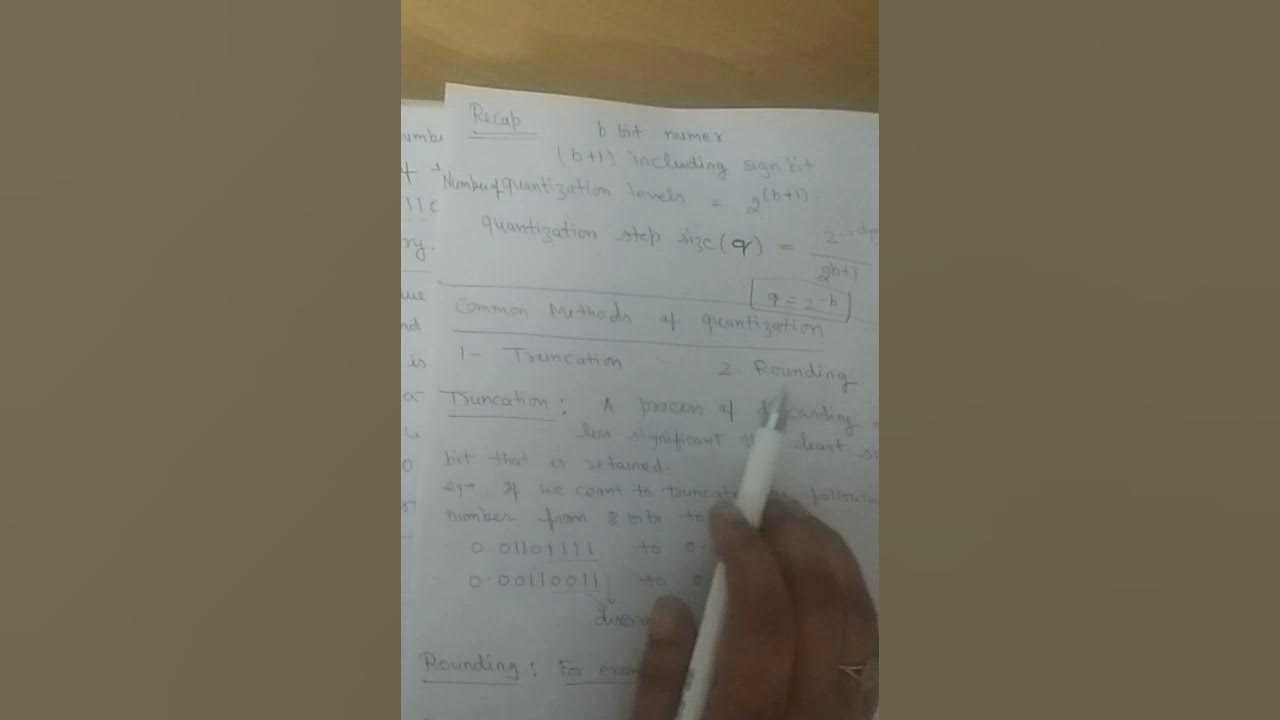 Recap
b bit numer
(b+1) including sign bit
Number of quantization levels = 2^(b+1)
quantization step size (q) = 2 / 2^b+1
q = 2^-b
Common Methods of quantization
1- Truncation 2. Rounding
Truncation : A process of
less significant least
bit that is retained.
eg→ If we want to
number from 8 bits to
0.01101111 to 0.
0.00110011 to 0
Rounding : For